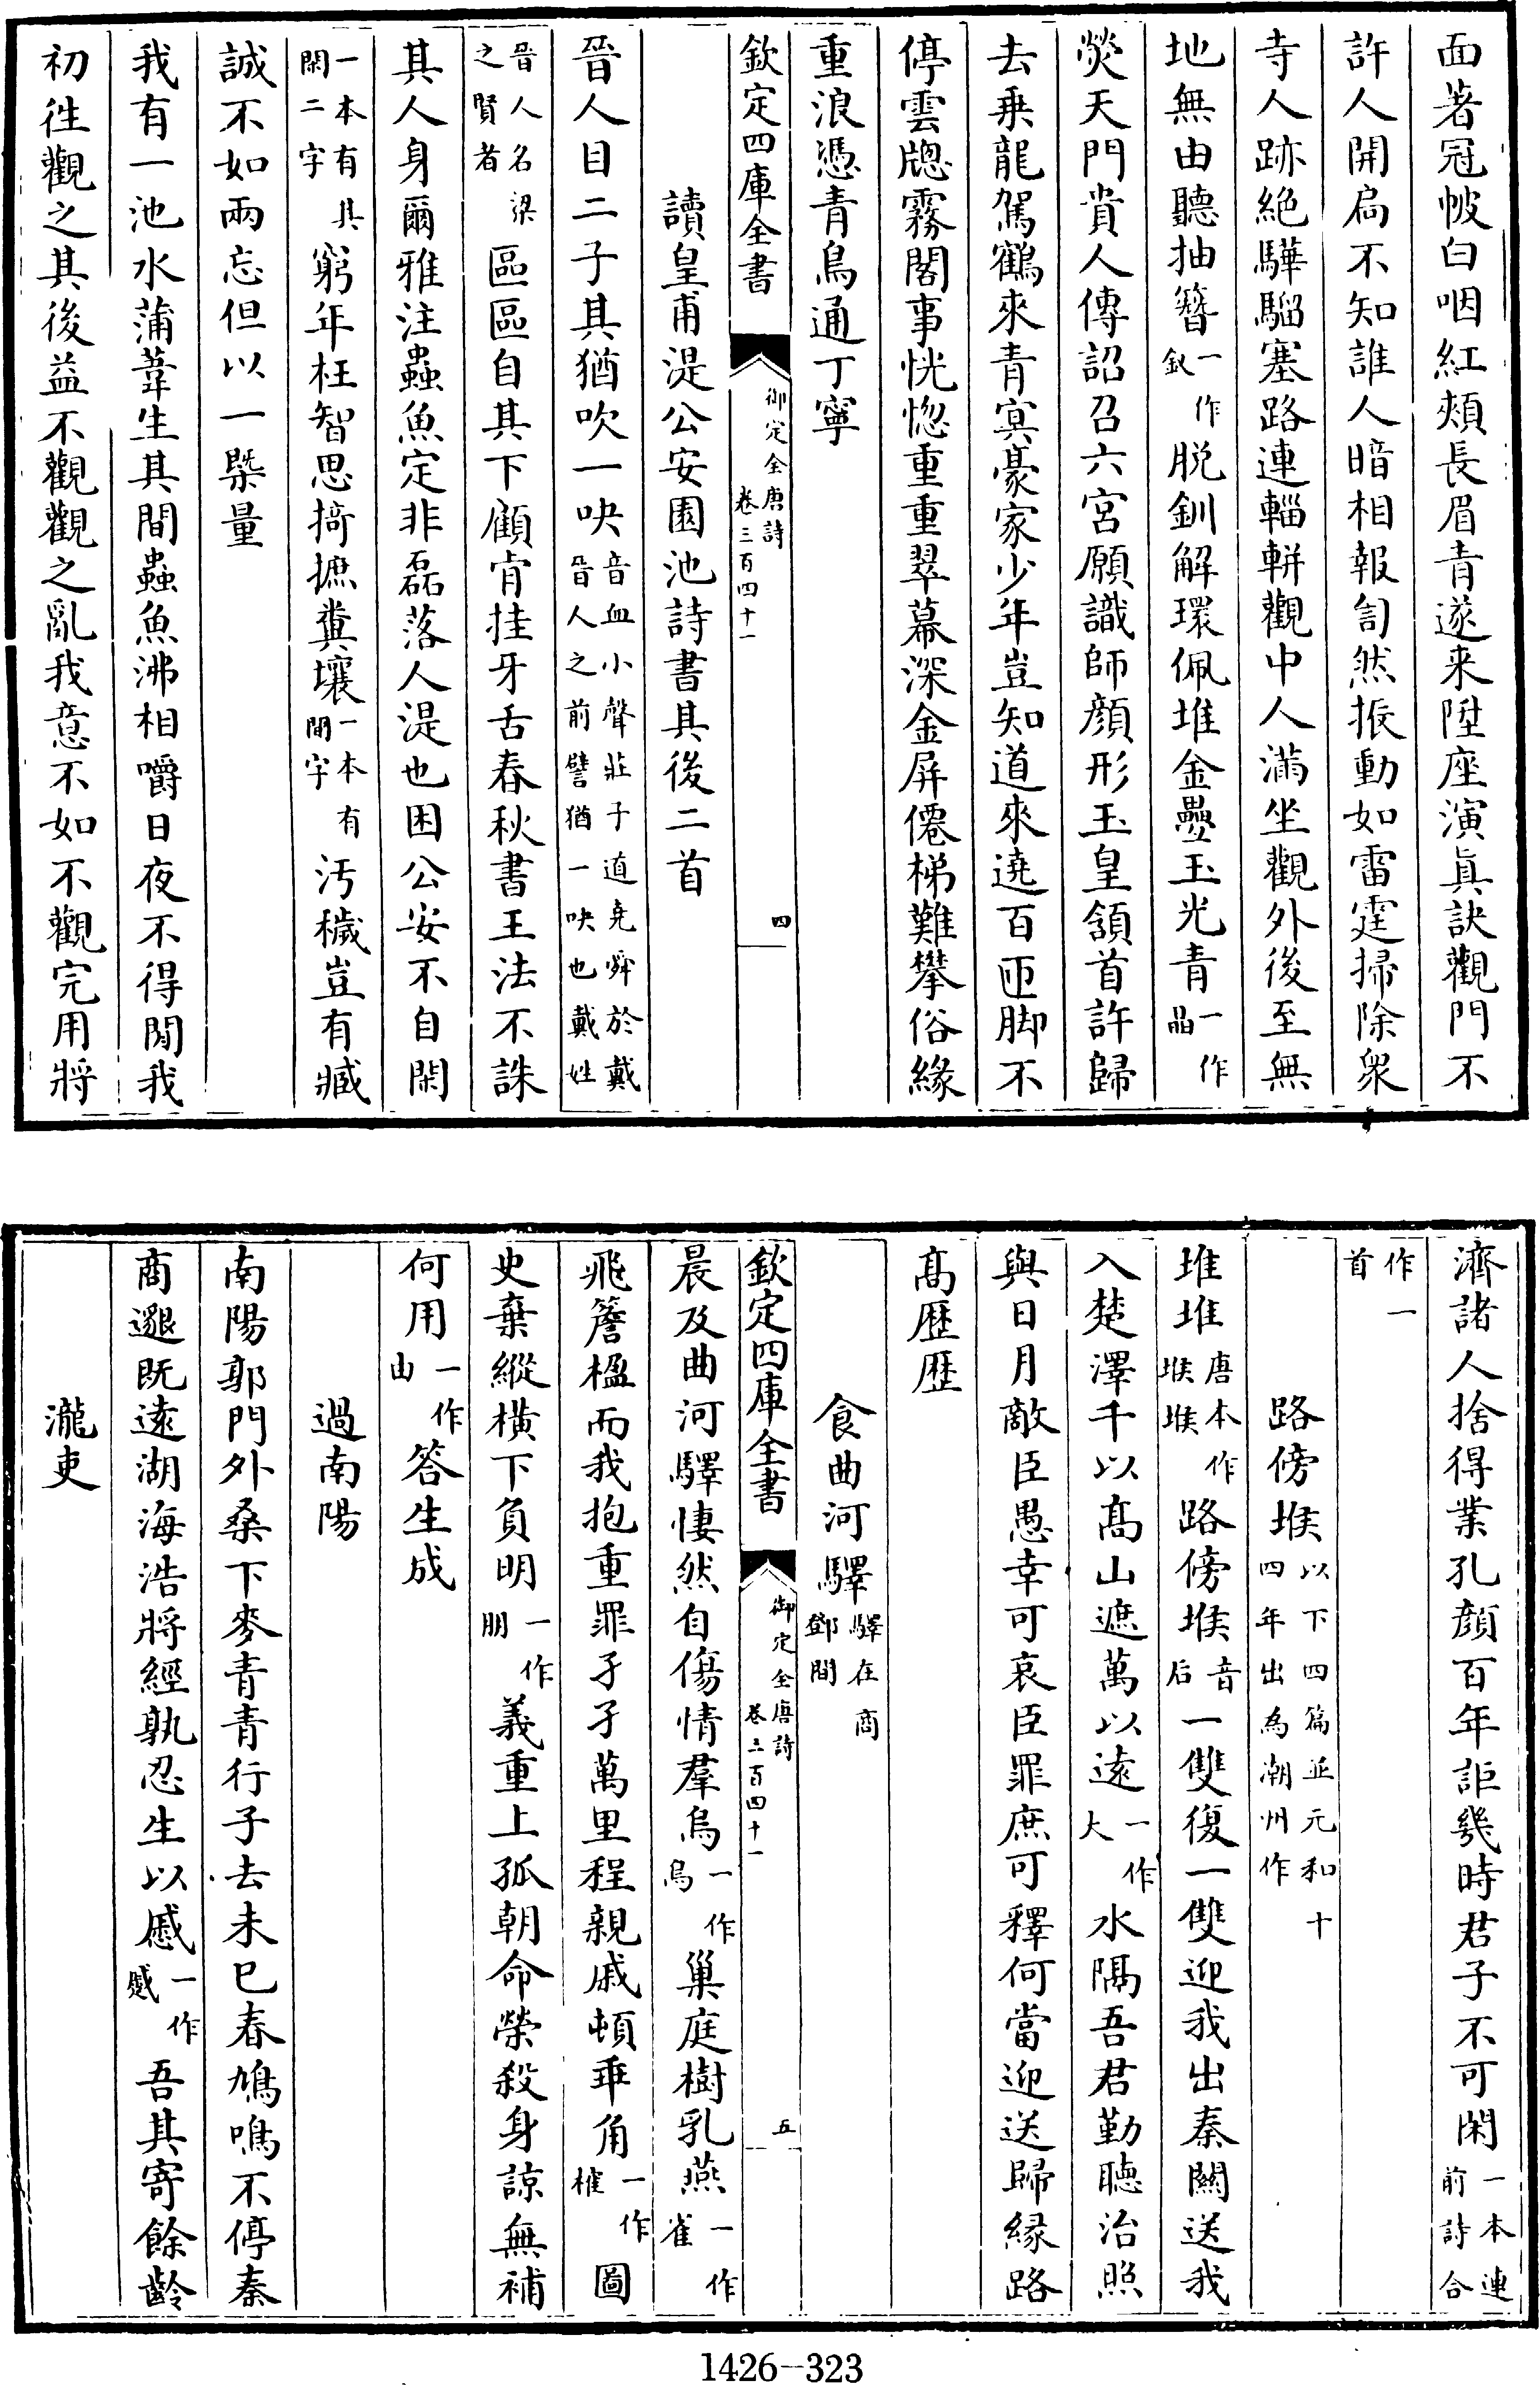 面著冠帔白咽紅頰長眉青遂来陞座演真訣觀門不
許人開扃不知誰人暗相報訇然振動如雷霆掃除衆
寺人跡絶驊騮塞路連輜軿觀中人滿坐觀外後至無
地無由聽抽簪一作釵脱釧解環佩堆金疊玉光青一作晶
熒天門貴人傳詔召六宮願識師顔形玉皇頷首許歸
去乗龍駕鶴來青㝠豪家少年豈知道來遶百匝脚不
停雲牕霧閣事恍惚重重翠幕深金屏僊梯難攀俗緣
重浪憑青鳥通丁寧
欽定四庫全書 御定全唐詩卷三百四十一 四
讀皇甫湜公安園池詩書其後二首
晉人目二子其猶吹一吷音血小聲莊子道堯舜於戴晉人之前譬猶一吷也戴姓
晉人名梁之賢者區區自其下顧肯挂牙舌春秋書王法不誅
其人身爾雅注蟲魚定非磊落人湜也困公安不自閑
一本有其閑二字窮年枉智思掎摭糞壤一本有間字汚穢豈有臧
誠不如兩忘但以一槩量
我有一池水蒲葦生其間蟲魚沸相嚼日夜不得閒我
初徃觀之其後益不觀觀之亂我意不如不觀完用將
濟諸人捨得業孔顔百年詎幾時君子不可閑一本連前詩合
作一首
路傍堠以下四篇並元和十四年出為潮州作
堆堆唐本作堠堠路傍堠音后一雙復一雙迎我出秦關送我
入楚澤千以髙山遮萬以逺一作大水隔吾君勤聽治照
與日月敵臣愚幸可哀臣罪庶可釋何當迎送歸緣路
髙歴歴
食曲河驛驛在商鄧間
欽定四庫全書 御定全唐詩卷三百四十一 五
晨及曲河驛悽然自傷情羣烏一作烏巢庭樹乳燕一作雀
飛簷楹而我抱重罪孑孑萬里程親戚頓乖角一作榷圖
史棄縱橫下負明一作朋義重上孤朝命榮殺身諒無補
何用一作由答生成
過南陽
南陽郭門外桑下麥青青行子去未已春鳩鳴不停秦
商邈既逺湖海浩將經孰忍生以慼一作慽吾其寄餘齡
瀧吏
1426-323